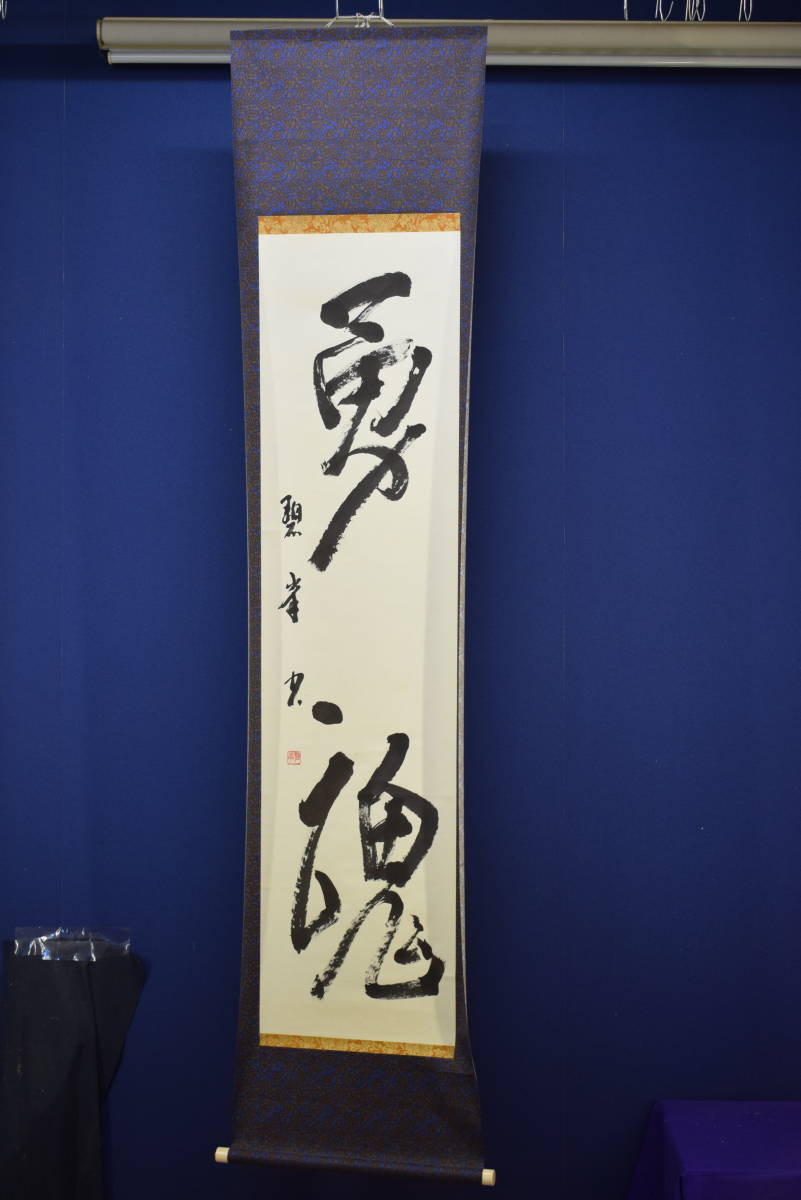 勇魂
碧峯書